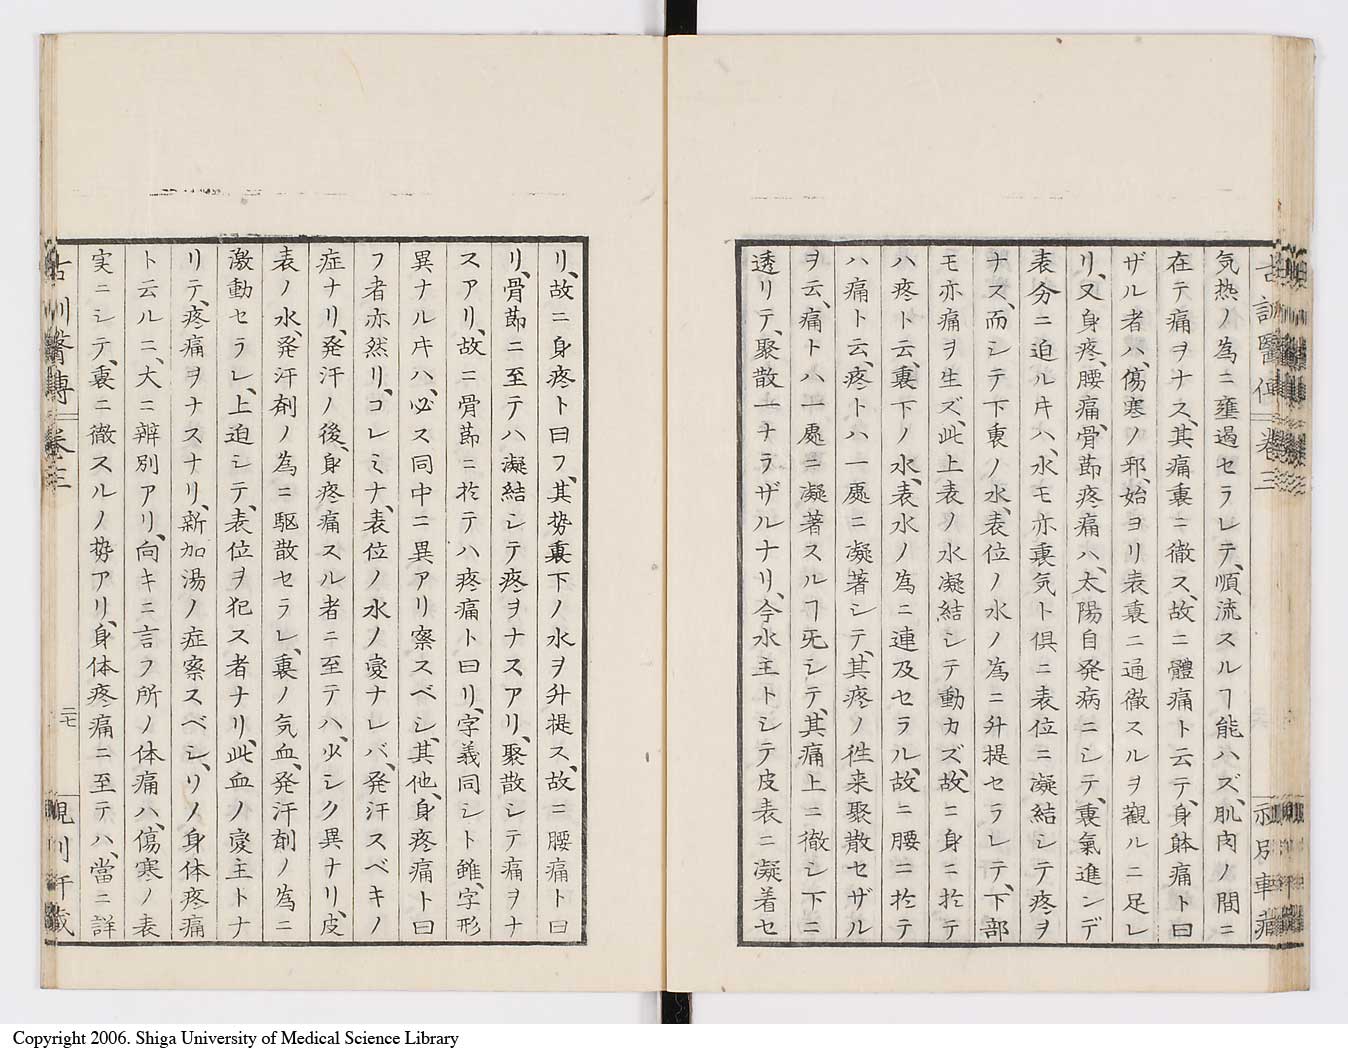 古訓醫傳 卷三
気热ノ為ニ壅遏セラレテ、順流スルヿ能ハズ、肌肉ノ間ニ
在テ痛ヲナス、其痛裏ニ徹ス、故ニ體痛ト云テ、身躰痛ト曰
ザル者ハ、傷寒ノ邪、始ヨリ表裏ニ通徹スルヲ觀ルニ足レ
リ、又身疼、腰痛、骨莭疼痛ハ、太陽自発病ニシテ、裏氣進ンデ
表分ニ迫ル𪜈ハ、水モ亦裏気ト倶ニ表位ニ凝結シテ疼ヲ
ナス、而シテ下裏ノ水、表位ノ水ノ為ニ升提セラレテ、下部
モ亦痛ヲ生ズ、此上表ノ水凝結シテ動カズ、故ニ身ニ於テ
ハ疼ト云、裏下ノ水、表水ノ為ニ連及セラル、故ニ腰ニ於テ
ハ痛ト云、疼トハ一處ニ凝著シテ、其疼ノ徃来聚散セザル
ヲ云、痛トハ一處ニ凝著スルヿ旡シテ、其痛上ニ徹シ下ニ
透リテ、聚散一ナラザルナリ、今水主トシテ皮表ニ凝着セ
リ、故ニ身疼ト曰フ、其势裏下ノ水ヲ升提ス、故ニ腰痛ト曰
リ、骨莭ニ至テハ凝結シテ疼ヲナスアリ、聚散シテ痛ヲナ
スアリ、故ニ骨莭ニ於テハ疼痛ト曰リ、字義同シト雖、字形
異ナル𪜈ハ、必ス同中ニ異アリ察スベシ、其他、身疼痛ト曰
フ者亦然リ、コレミナ、表位ノ水ノ変ナレバ、発汗スベキノ
症ナリ、発汗ノ後、身疼痛スル者ニ至テハ、少シク異ナリ、皮
表ノ水、発汗剤ノ為ニ駆散セラレ、裏ノ気血、発汗剤ノ為ニ
激動セラレ、上迫シテ、表位ヲ犯ス者ナリ、此血ノ変主トナ
リテ、疼痛ヲナスナリ、新加湯ノ症察スベシ、リノ身体疼痛
ト云ルニ、大ニ辨別アリ、向キニ言フ所ノ体痛ハ、傷寒ノ表
実ニシテ、裏ニ徹スルノ势アリ、身体疼痛ニ至テハ、當ニ詳
古訓醫傳 卷三
二七